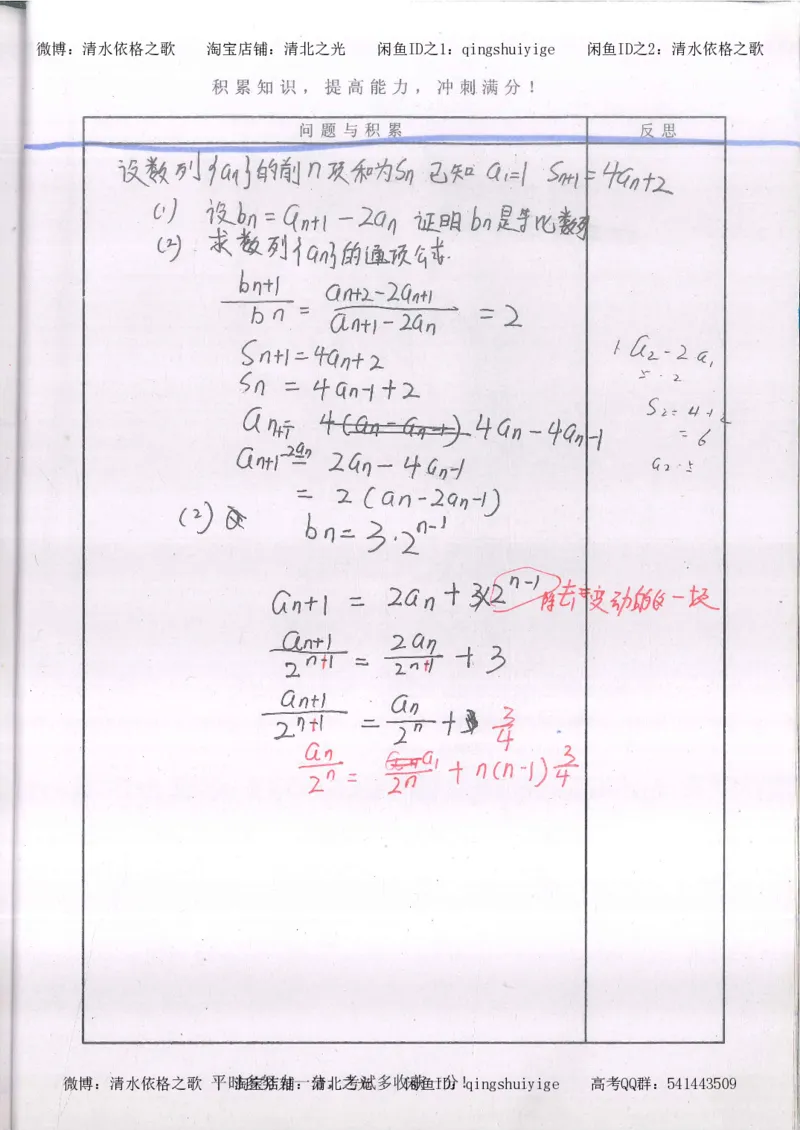 微博：清水依格之歌 淘宝店铺：清北之光 闲鱼ID之1：qingshuiyige 闲鱼ID之2：清水依格之歌
积累知识，提高能力，冲刺满分！
问题与积累 反思
设数列{an}的前n项和为Sn 已知 a1=1 Sn+1=4an+2
(1) 设bn=an+1-2an 证明bn是等比数列
(2) 求数列{an}的通项公式.
bn+1/bn = an+2-2an+1/an+1-2an = 2
Sn+1=4an+2
Sn = 4an-1+2
an+1= 4(an-an-1) 4an-4an-1
an+1-2an = 2an-4an-1
= 2(an-2an-1)
(2) bn=3·2^n-1
an+1 = 2an+3×2^n-1 除去变动的一项
an+1/2^n+1 = 2an/2^n+1 + 3
an+1/2^n+1 = an/2^n + 3/4
an/2^n = a1/2^n + n(n-1)3/4
a2-2a1
5·2
S2=4+2
=6
a2·5
微博：清水依格之歌 淘宝店铺：清北之光 闲鱼ID：qingshuiyige 高考QQ群：541443509